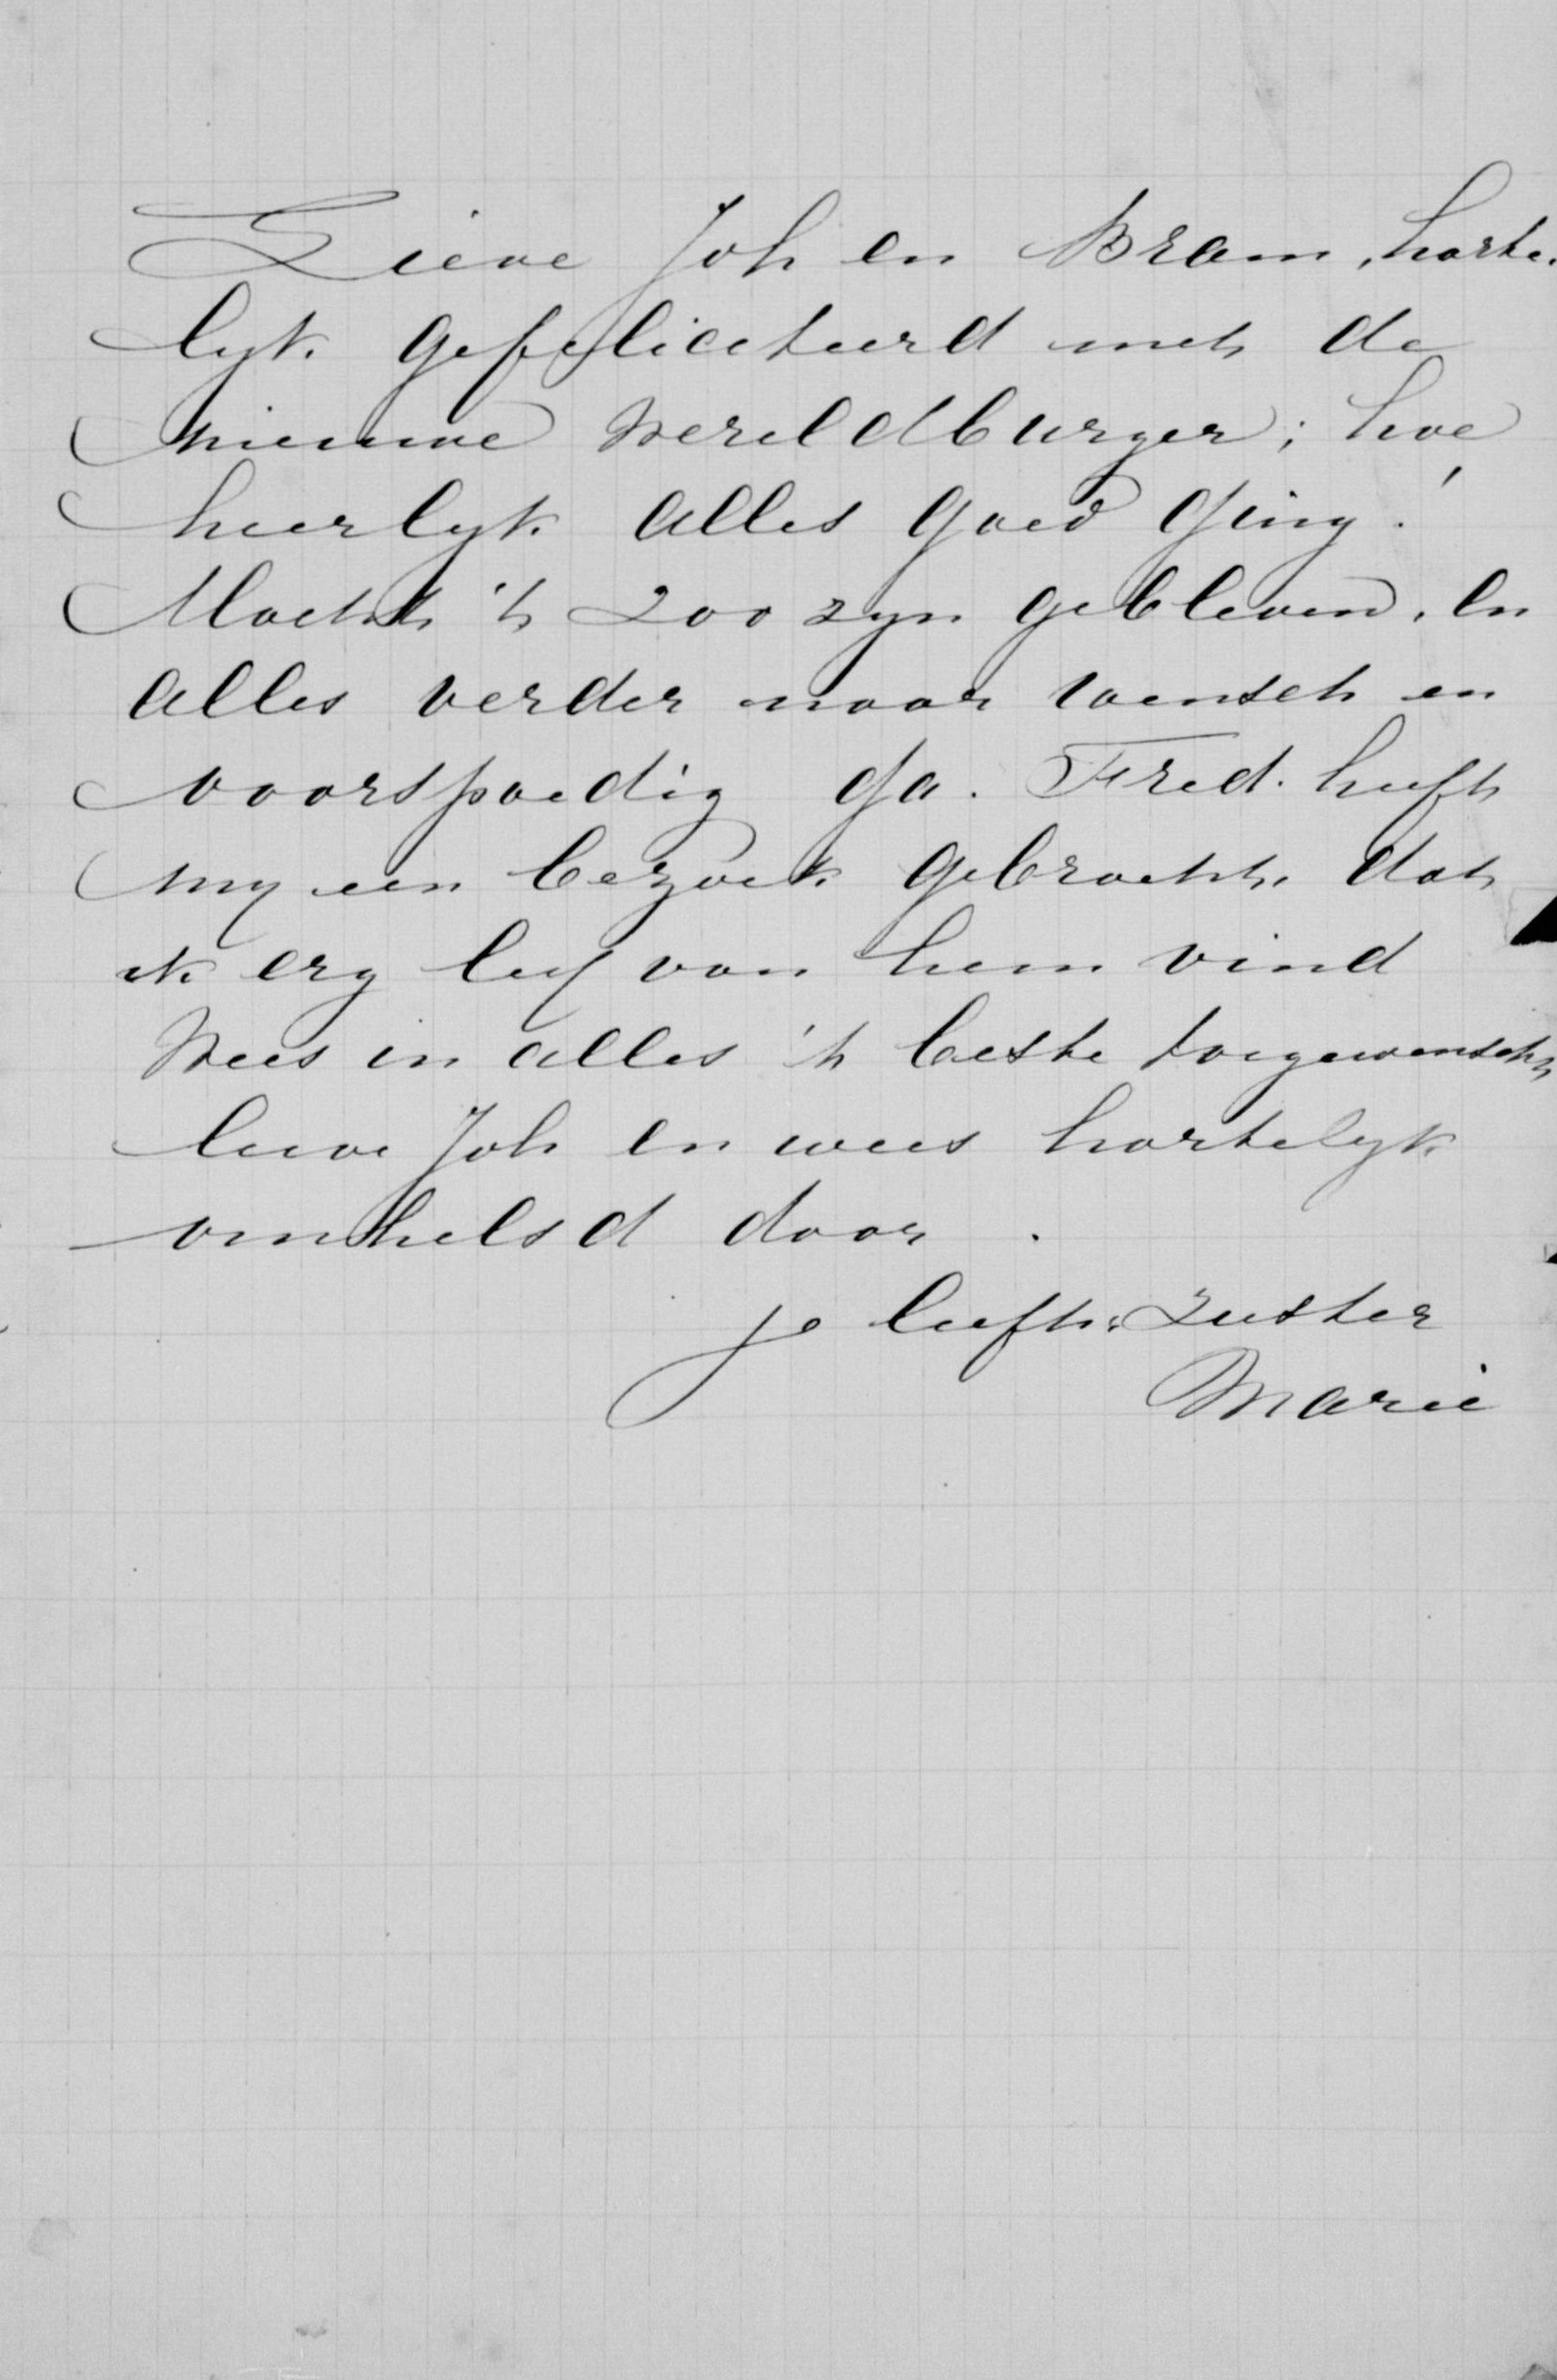 Lieve Joh en Bram, harte-
lyk gefeliciteerd met de
nieuwe Wereldburger; hoe
heerlyk alles goed ging!
Mocht 't zoo zyn gebleven, en
alles verder naar wensch en
voorspoedig ga. Fred. heeft
my een bezoek gebracht, dat
ik erg lief van hem vind
Wees in alles 't beste toegewenscht
lieve Joh en wees hartelyk
omhelsd door.
je liefh: Zuster
Marie